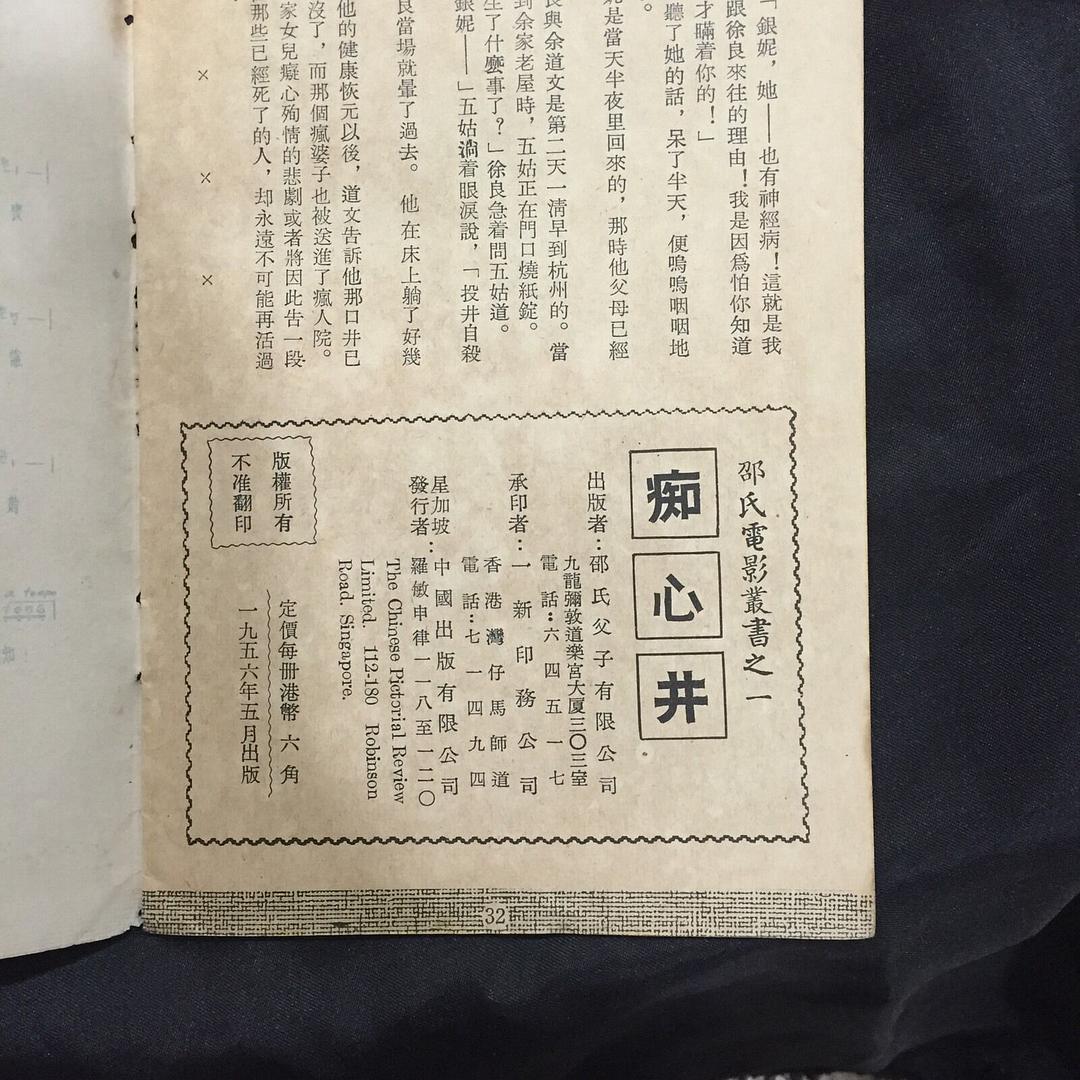 「銀妮，她——也有神經病！這就是我
跟徐良來往的理由！我是因爲怕你知道
才瞞着你的！」
聽了她的話，呆了半天，便嗚嗚咽咽地
。
妮是當天半夜里回來的，那時他父母已經
良與余道文是第二天一清早到杭州的。當
到余家老屋時，五姑正在門口燒紙錠。
生了什麼事了？」徐良急着問五姑道。
銀妮——」五姑淌着眼淚說，「投井自殺
良當場就暈了過去。他在床上躺了好幾
他的健康恢元以後，道文告訴他那口井已
沒了，而那個瘋婆子也被送進了瘋人院。
家女兒癡心殉情的悲劇或者將因此告一段
那些已經死了的人，却永遠不可能再活過
× × ×
邵氏電影叢書之一
痴心井
出版者：邵氏父子有限公司
九龍彌敦道樂宮大厦三〇三室
電話：六四五一七
承印者：一新印務公司
香港灣仔馬師道
電話：七一四九四
星加坡
發行者：中國出版有限公司
羅敏申律一一八至一二〇
The Chinese Pictorial Review
Limited. 112-180 Robinson
Road. Singapore.
版權所有
不准翻印
定價每册港幣六角
一九五六年五月出版
32